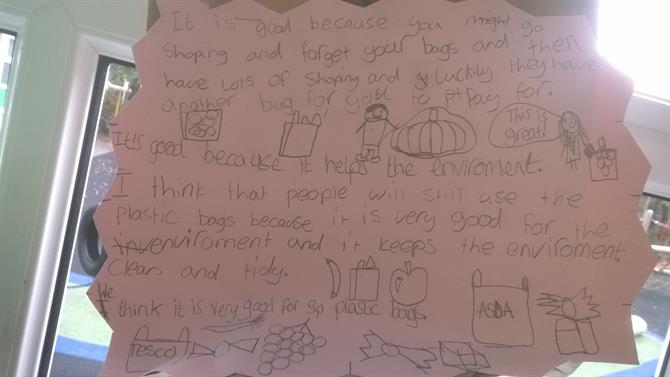 It is good because you might go
Shoping and forget your bags and then
have lots of shoping and luckily they have
another bag for you to pay for.
This is
great!
It's good because it helps the enviroment.
I think that people will still use the
Plastic bags because it is very good for the
enviroment and it keeps the enviroment
Clean and tidy.
We
think it is very good for 5p plastic bags
ASDA
TESCO